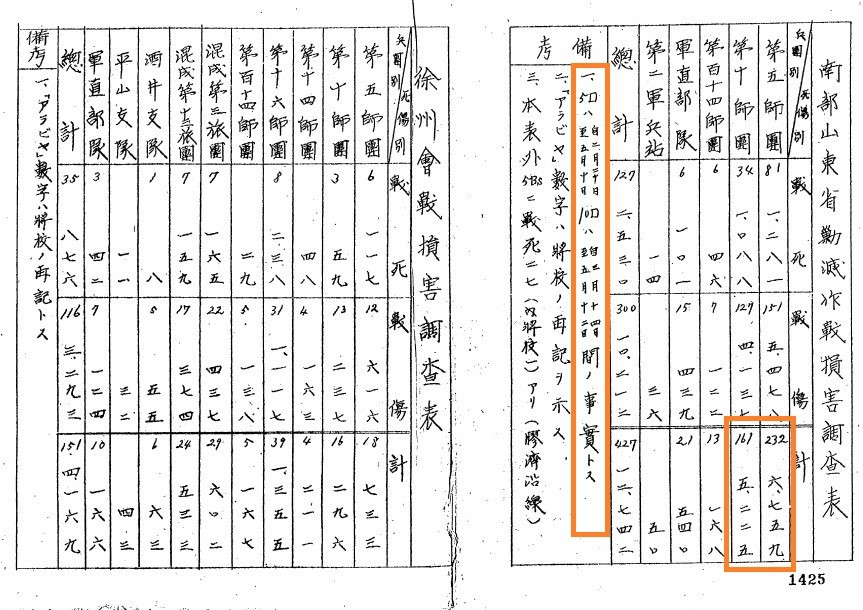 南部山東省勦滅作戰損害調査表
兵團別 死傷別 戰死 戰傷 計
第五師團 81 一、二八一 151 五、四七八 232 六、七五九
第十師團 34 一、〇八八 127 四、一三七 161 五、二二五
第百十四師團 6 四六 7 一二二 13 一六八
軍直部隊 6 一〇一 15 四三九 21 五四〇
第二軍兵站 一四 三六 五〇
總計 127 二、五三〇 300 一〇、二一二 427 一二、七四二
備考
一、5Dハ自二月二十日至五月十日 10Dハ自三月十四日至五月十二日間ノ事實トス
二、「アラビヤ」數字ハ將校ノ再記ヲ示ス
三、本表外5BSニ戰死二七(内將校一)アリ(膠濟沿線)
1425
徐州會戰損害調査表
兵團別 死傷別 戰死 戰傷 計
第五師團 6 一一七 12 六一六 18 七三三
第十師團 3 五九 13 二三七 16 二九六
第十四師團 四八 4 一六三 4 二一一
第十六師團 8 二三八 31 一、一一七 39 一、三五五
第百十四師團 二九 5 一三八 5 一六七
混成第三旅團 7 一六五 22 四三七 29 六〇二
混成第十三旅團 7 一五九 17 三七四 24 五三三
酒井支隊 1 八 5 五五 6 六三
平山支隊 一一 三二 四三
軍直部隊 3 四二 7 一二四 10 一六六
總計 35 八七六 116 三、二九三 151 四、一六九
備考
一、「アラビヤ」數字ハ將校ノ再記トス